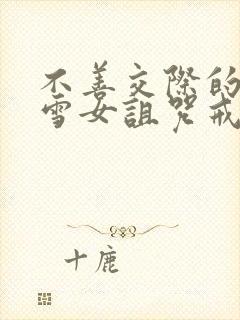 不善交际的
雪女诅咒戒
十鹿